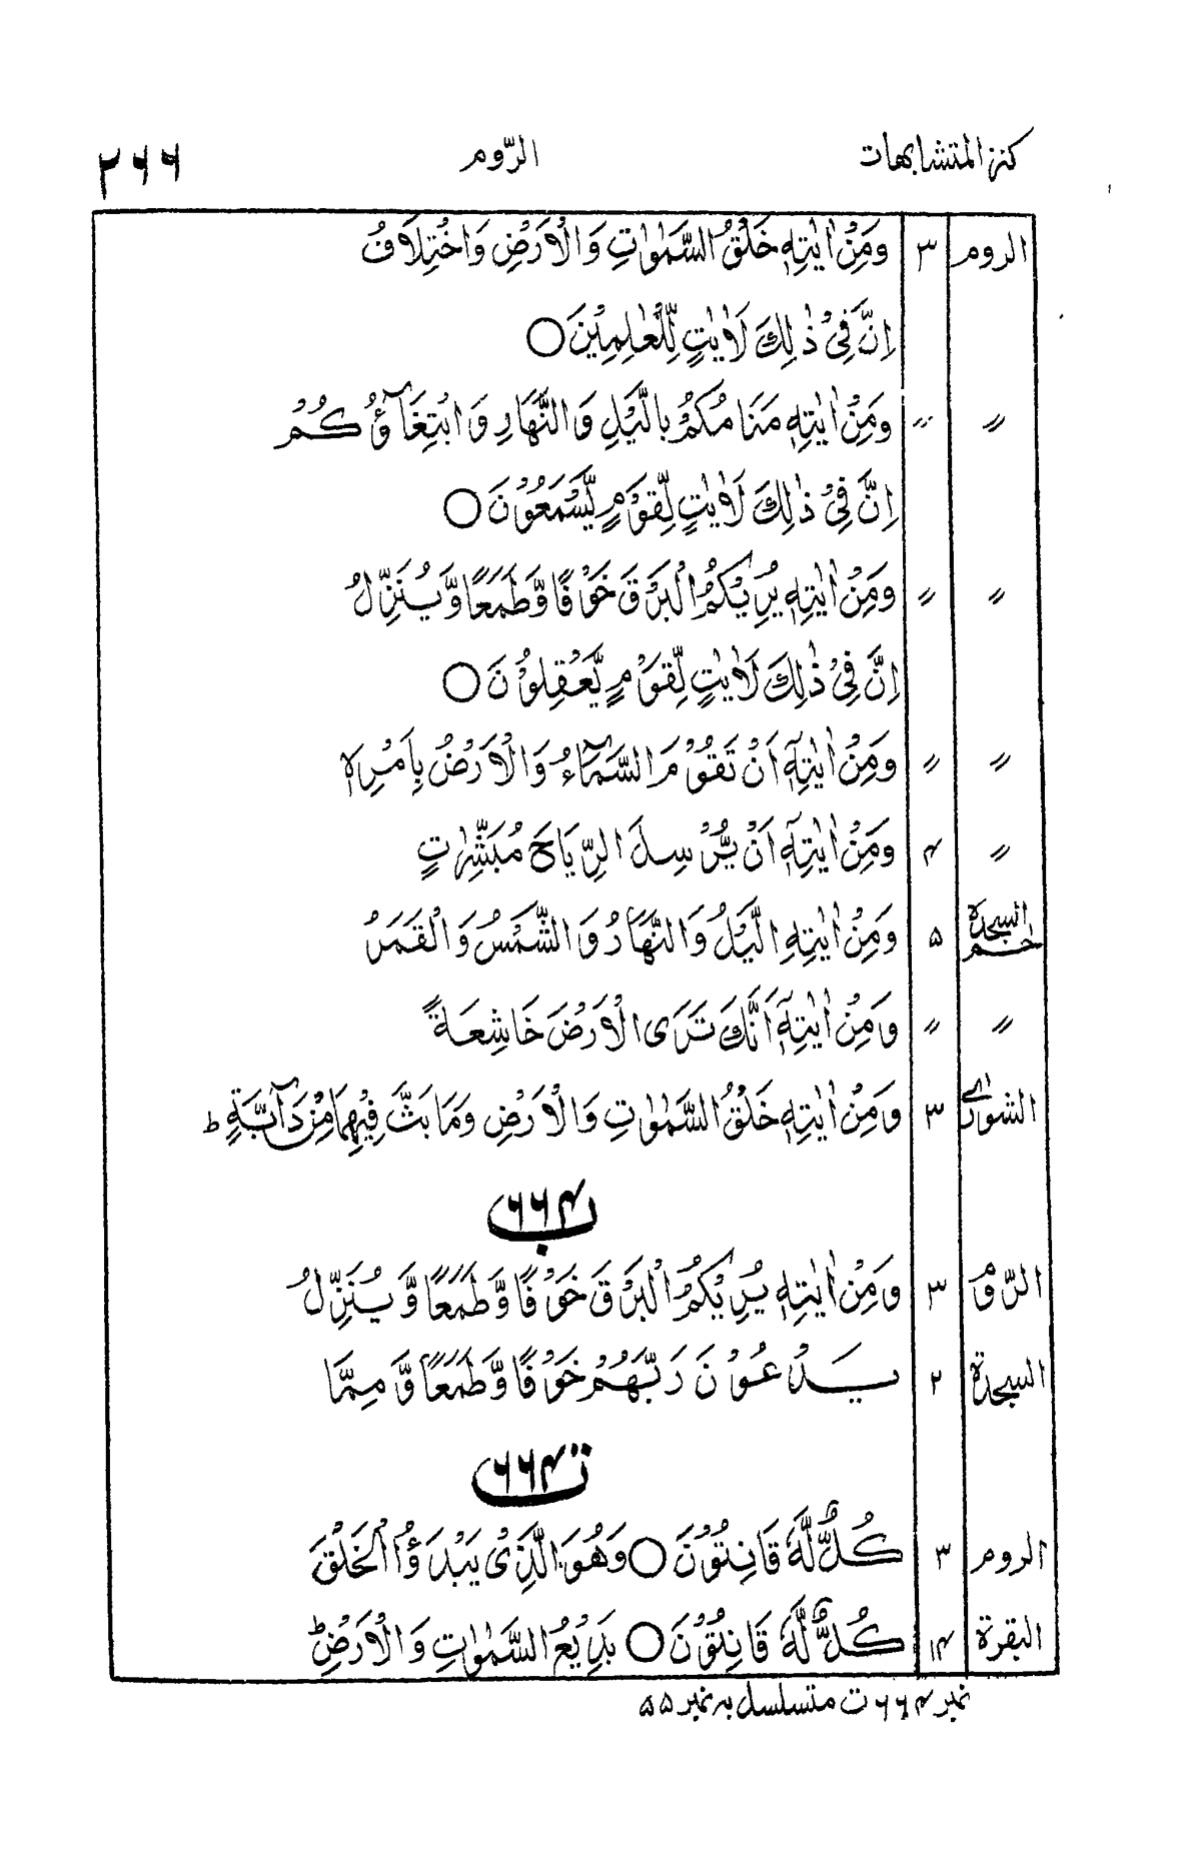 كنز المتشابهات الرّوم ۲۶۶
الروم ۳ وَمِنْ اٰيٰتِهٖ خَلْقُ السَّمٰوٰتِ وَالْاَرْضِ وَاخْتِلَافُ
اِنَّ فِيْ ذٰلِكَ لَاٰيٰتٍ لِّلْعٰلِمِيْنَ ○
〃 〃 وَمِنْ اٰيٰتِهٖ مَنَامُكُمْ بِالَّيْلِ وَالنَّهَارِ وَابْتِغَآؤُكُمْ
اِنَّ فِيْ ذٰلِكَ لَاٰيٰتٍ لِّقَوْمٍ يَّسْمَعُوْنَ ○
〃 〃 وَمِنْ اٰيٰتِهٖ يُرِيْكُمُ الْبَرْقَ خَوْفًا وَّطَمَعًا وَّيُنَزِّلُ
اِنَّ فِيْ ذٰلِكَ لَاٰيٰتٍ لِّقَوْمٍ يَّعْقِلُوْنَ ○
〃 〃 وَمِنْ اٰيٰتِهٖٓ اَنْ تَقُوْمَ السَّمَآءُ وَالْاَرْضُ بِاَمْرِهٖ
〃 ۴ وَمِنْ اٰيٰتِهٖٓ اَنْ يُّرْسِلَ الرِّيَاحَ مُبَشِّرٰتٍ
حٰم السجدة ۵ وَمِنْ اٰيٰتِهِ الَّيْلُ وَالنَّهَارُ وَالشَّمْسُ وَالْقَمَرُ
〃 〃 وَمِنْ اٰيٰتِهٖٓ اَنَّكَ تَرَى الْاَرْضَ خَاشِعَةً
الشورٰى ۳ وَمِنْ اٰيٰتِهٖ خَلْقُ السَّمٰوٰتِ وَالْاَرْضِ وَمَا بَثَّ فِيْهِمَا مِنْ دَآبَّةٍ ط
۶۶۴ ب
الرّوم ۳ وَمِنْ اٰيٰتِهٖ يُرِيْكُمُ الْبَرْقَ خَوْفًا وَّطَمَعًا وَّيُنَزِّلُ
السجدة ۲ يَدْعُوْنَ رَبَّهُمْ خَوْفًا وَّطَمَعًا وَّمِمَّا
۶۶۴ ت
الروم ۳ كُلٌّ لَّهٗ قَانِتُوْنَ ○ وَهُوَ الَّذِيْ يَبْدَؤُا الْخَلْقَ
البقرة ۱۴ كُلٌّ لَّهٗ قَانِتُوْنَ ○ بَدِيْعُ السَّمٰوٰتِ وَالْاَرْضِ ط
نمبر ۶۶۴ ت متسلسل بہ نمبر ۵۵